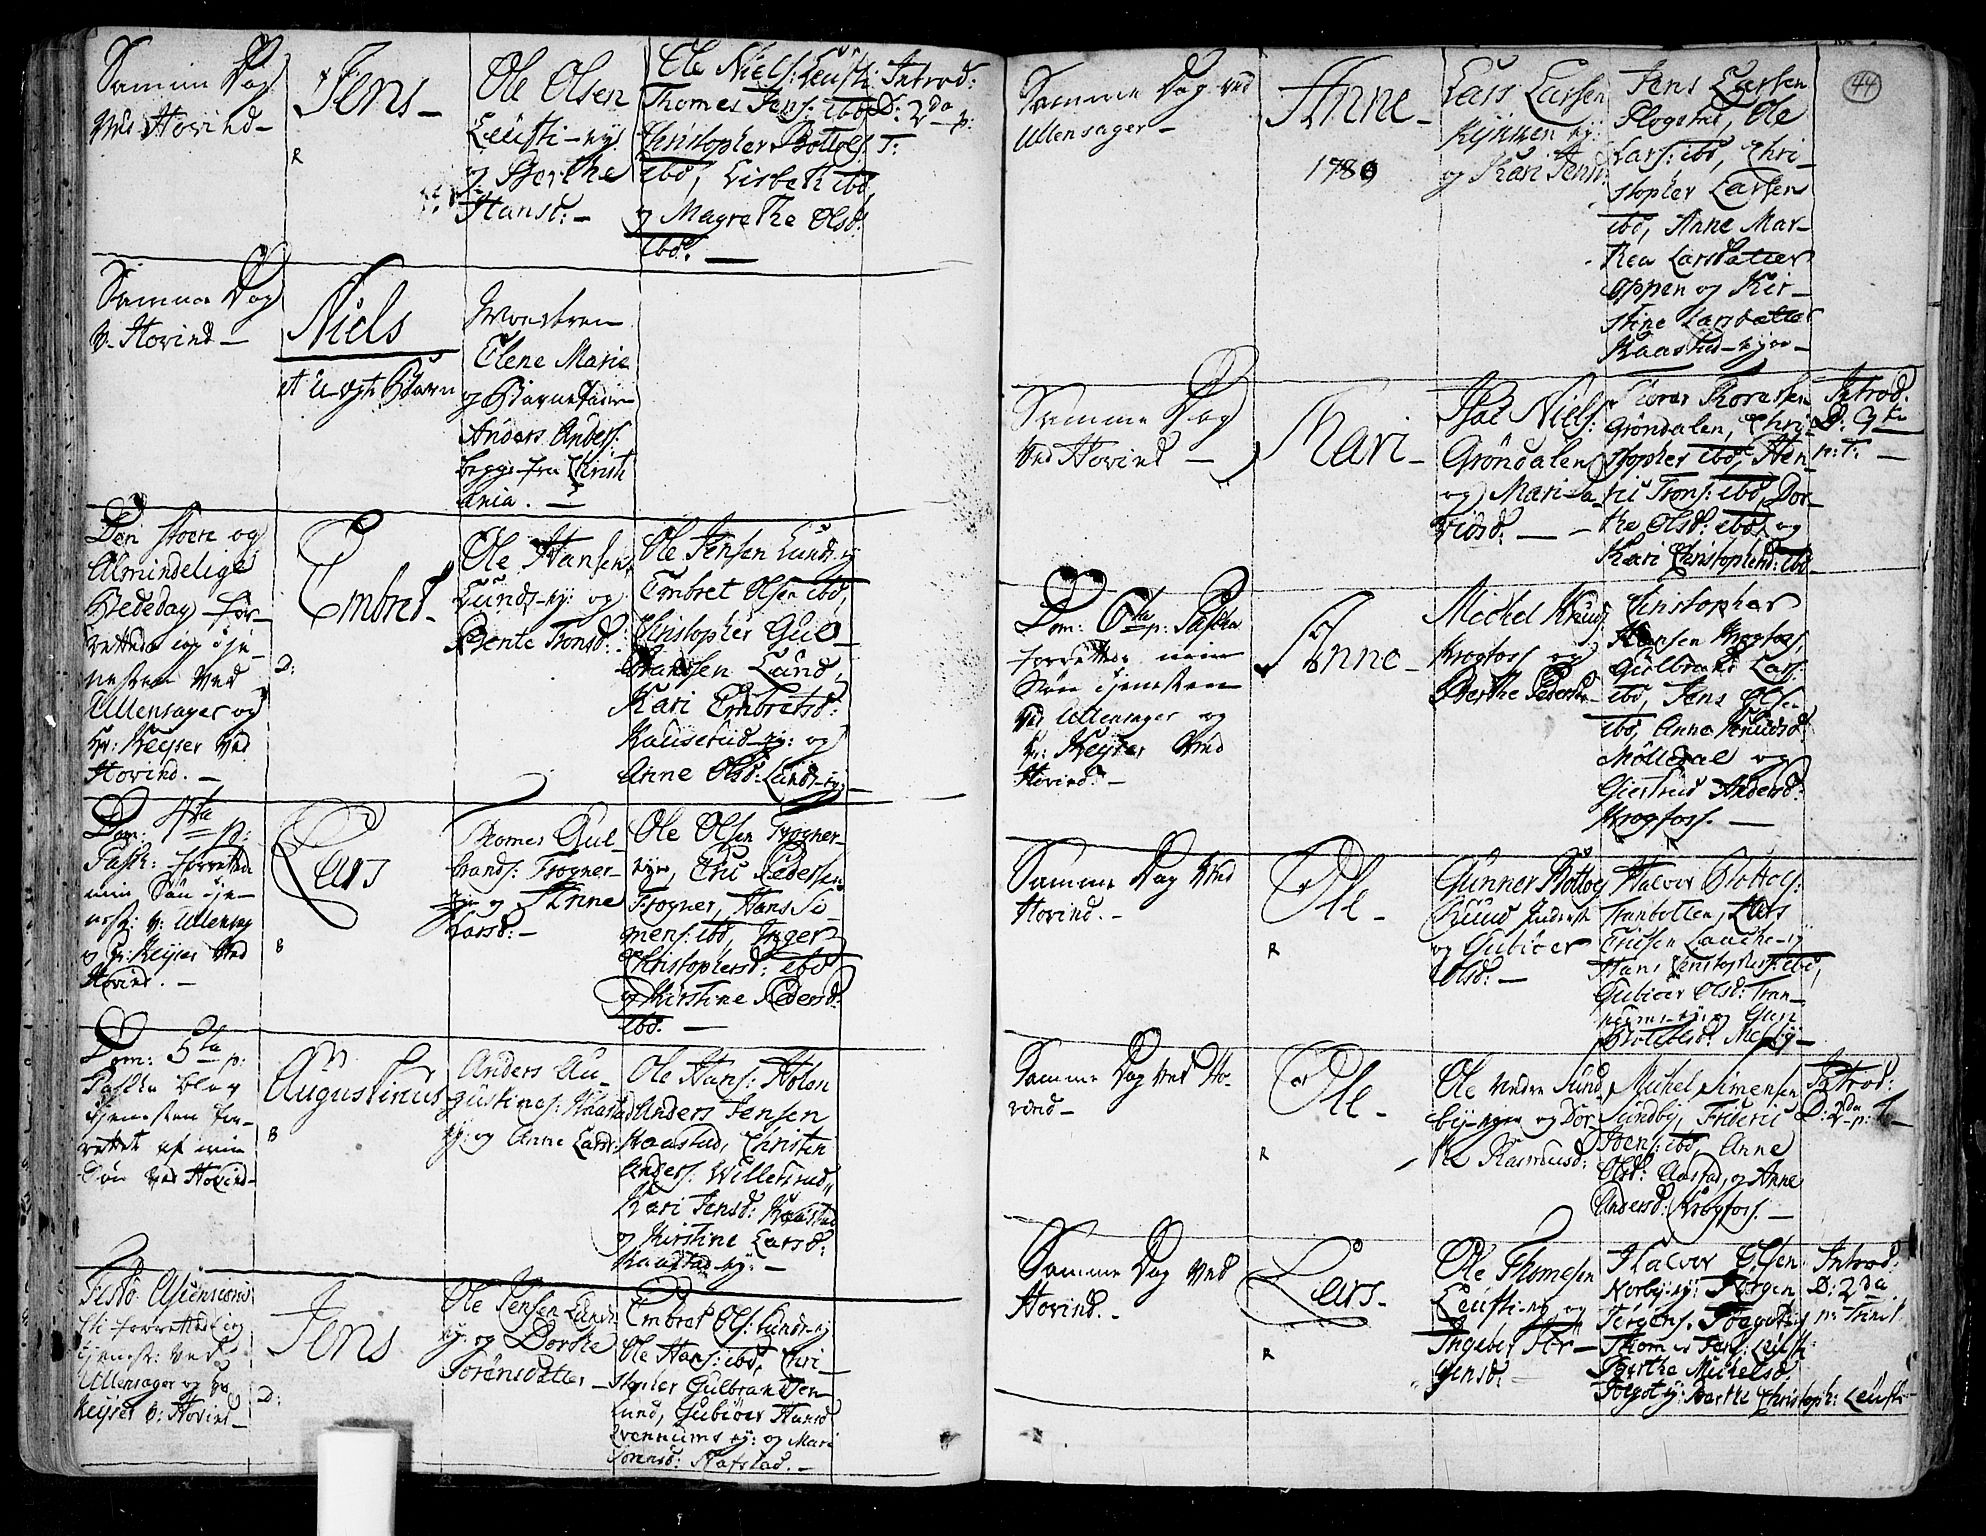 Samme Dag
ved Hovind –
Jens –
R
Ole Olsen
Leusti – ey:
og Berthe
Hansd: –
Ole Niels: Leusti
Thomes Jens: ibd
Christopher Bottols:
ibd, Lisbeth ibd
og Magrethe Olsd:
ibd. –
Introd:
D: 2da p:
T:
Samme Dag
v. Hovind –
Niels
et u-ægte Barn
Elene Marie
og Barnefader
Anders Anders:
begge fra Christi
ania. –
Den store og
Almindelige
Bededag for-
rettede jeg Tje-
nesten ved
Ullensager og
Hr: Keyser ved
Hovind. –
Embret –
D:
Ole Hansen
Lunds-ey: og
Bente Tronsd: –
Ole Jensen Lunds-ey
Embret Olsen ibd,
Christopher Gul-
brandsen Lund,
Kari Embretsd:
Kausetud-ey: og
Anne Olsd: Lunds-ey: –
Dom: 4ta p:
Pasch: forrettede
min Søn Tje-
nest: v: Ullensag
og Hr: Keyser ved
Hovind. –
Lars
B
Thomes Gul-
brands: Frogner-
eye og Anne
Larsd: –
Ole Olsen Frogner-
eye, Eru Pedersen
Frogner, Hans Si-
mens: ibd, Inger
Christophersd: ibd
og Kirstine Pedersd:
ibd. –
Dom: 5ta p:
Pascha blev
Tjenesten for-
rettet af min
Søn ved Hovind –
Augustinus
B
Anders Au-
gustinus: Kaastad
ey: og Anne Larsd:
Ole Hans: Holen
Anders Jensen
Kaastad, Christen
Anders: Willetrud,
Kari Jensd: Kaastad
og Kirstine Larsd:
Kaastad-ey: –
Festo Ascensionis
Tjenest: ved
Ullensager og Hr
Keyser v: Hovind –
Jens
D:
Ole Jensen Lunds
ey: og Dorthe
Sørensdatter –
Embret Ols: Lunds-ey
Ole Hans: ibd, Chri-
stopher Gulbrandsen
Lund, Gubiøer Hansd
Kvennums ey: og Mari
Sørensd: Rafstad. –
44
Samme Dag ved
Ullensager –
Anne –
1780
Lars Larsen
Kijnnen ey:
og Kari Jensd:
Jens Larsen
Plogstad, Ole
Lars: ibd, Chri-
stopher Larsen
ibd, Anne Mar-
thea Larsdatter
Oppen og Kir-
stine Larsdatter
Kaastad-eyer –
Samme Dag
ved Hovind –
Mari –
Isac Niels:
Grøndalen
og Mari Da-
vidsd: –
Grøndalen, Chri-
stopher ibd, Hen-
ric Trons: ibd, Dor-
the Olsd: ibd, og
Kari Christophersd: ibd –
Introd.
D: 9de
p: T: –
Dom: 6ta p: Pascha
forrettede min
Søn Tjenesten
ved Ullensager og
Hr: Keyser ved
Hovind. –
Anne –
Michel Knuds:
Krogfoss og
Berthe Pedersd:
Christopher
Hansen Krogfoss,
Gulbrand Lars:
ibd, Jens Olsen
ibd, Anne Knudsd
Mølledal og
Giertrud Andersd:
Krogfoss. –
Samme Dag ved
Hovind. –
Ole –
R
Gunner Bottols
Ruud
og Gubiøer
Olsd: –
Halvor Bottols:
Tranbotten, Lars
Ericsen Lauche-ey
Hans Christophers: ibd,
Gubiøer Olsd: Tran-
og Guri
Bottelsd: Mesby –
Samme Dag ved Ho-
vind –
Ole –
R
Ole Nedre Sund-
bij-eyer og Dor-
the Rasmusd:
Michel Simensen
Sundby, Frideric
Joens: ibd Anne
Olsd: Aastad, og Anne
Andersd: Krogfoss. –
Introd:
D: 2da p: T –
Samme Dag ved
Hovind. –
Lars –
R
Ole Thomesen
Leusti-ey og
Ingebor Jør-
gensd: –
Halvor Olsen
Norby-ey: Jørgen
Jørgens: Foegetey
Thomes Jens: Leusti
Berthe Michelsd.
Foegot ey: Berthe Christoph: Leusti –
Introd:
D: 2da
p: Trinit